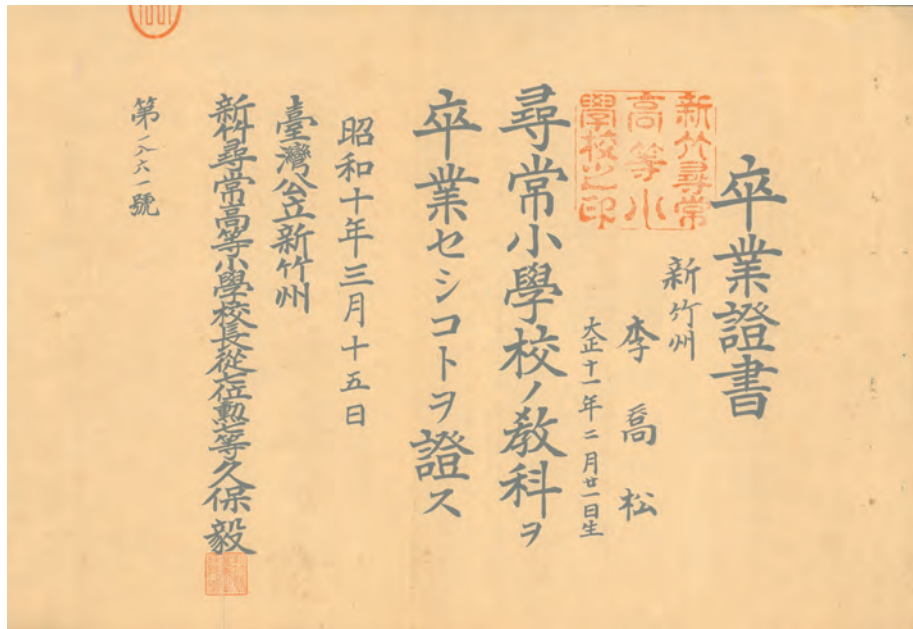 卒業證書
新竹州
李喬松
大正十一年二月廿一日生
新竹尋常
高等小
學校之印
尋常小學校ノ敎科ヲ
卒業セシコトヲ證ス
昭和十年三月十五日
臺灣公立新竹州
新竹尋常高等小學校長從七位勲七等久保毅
第一八六一號